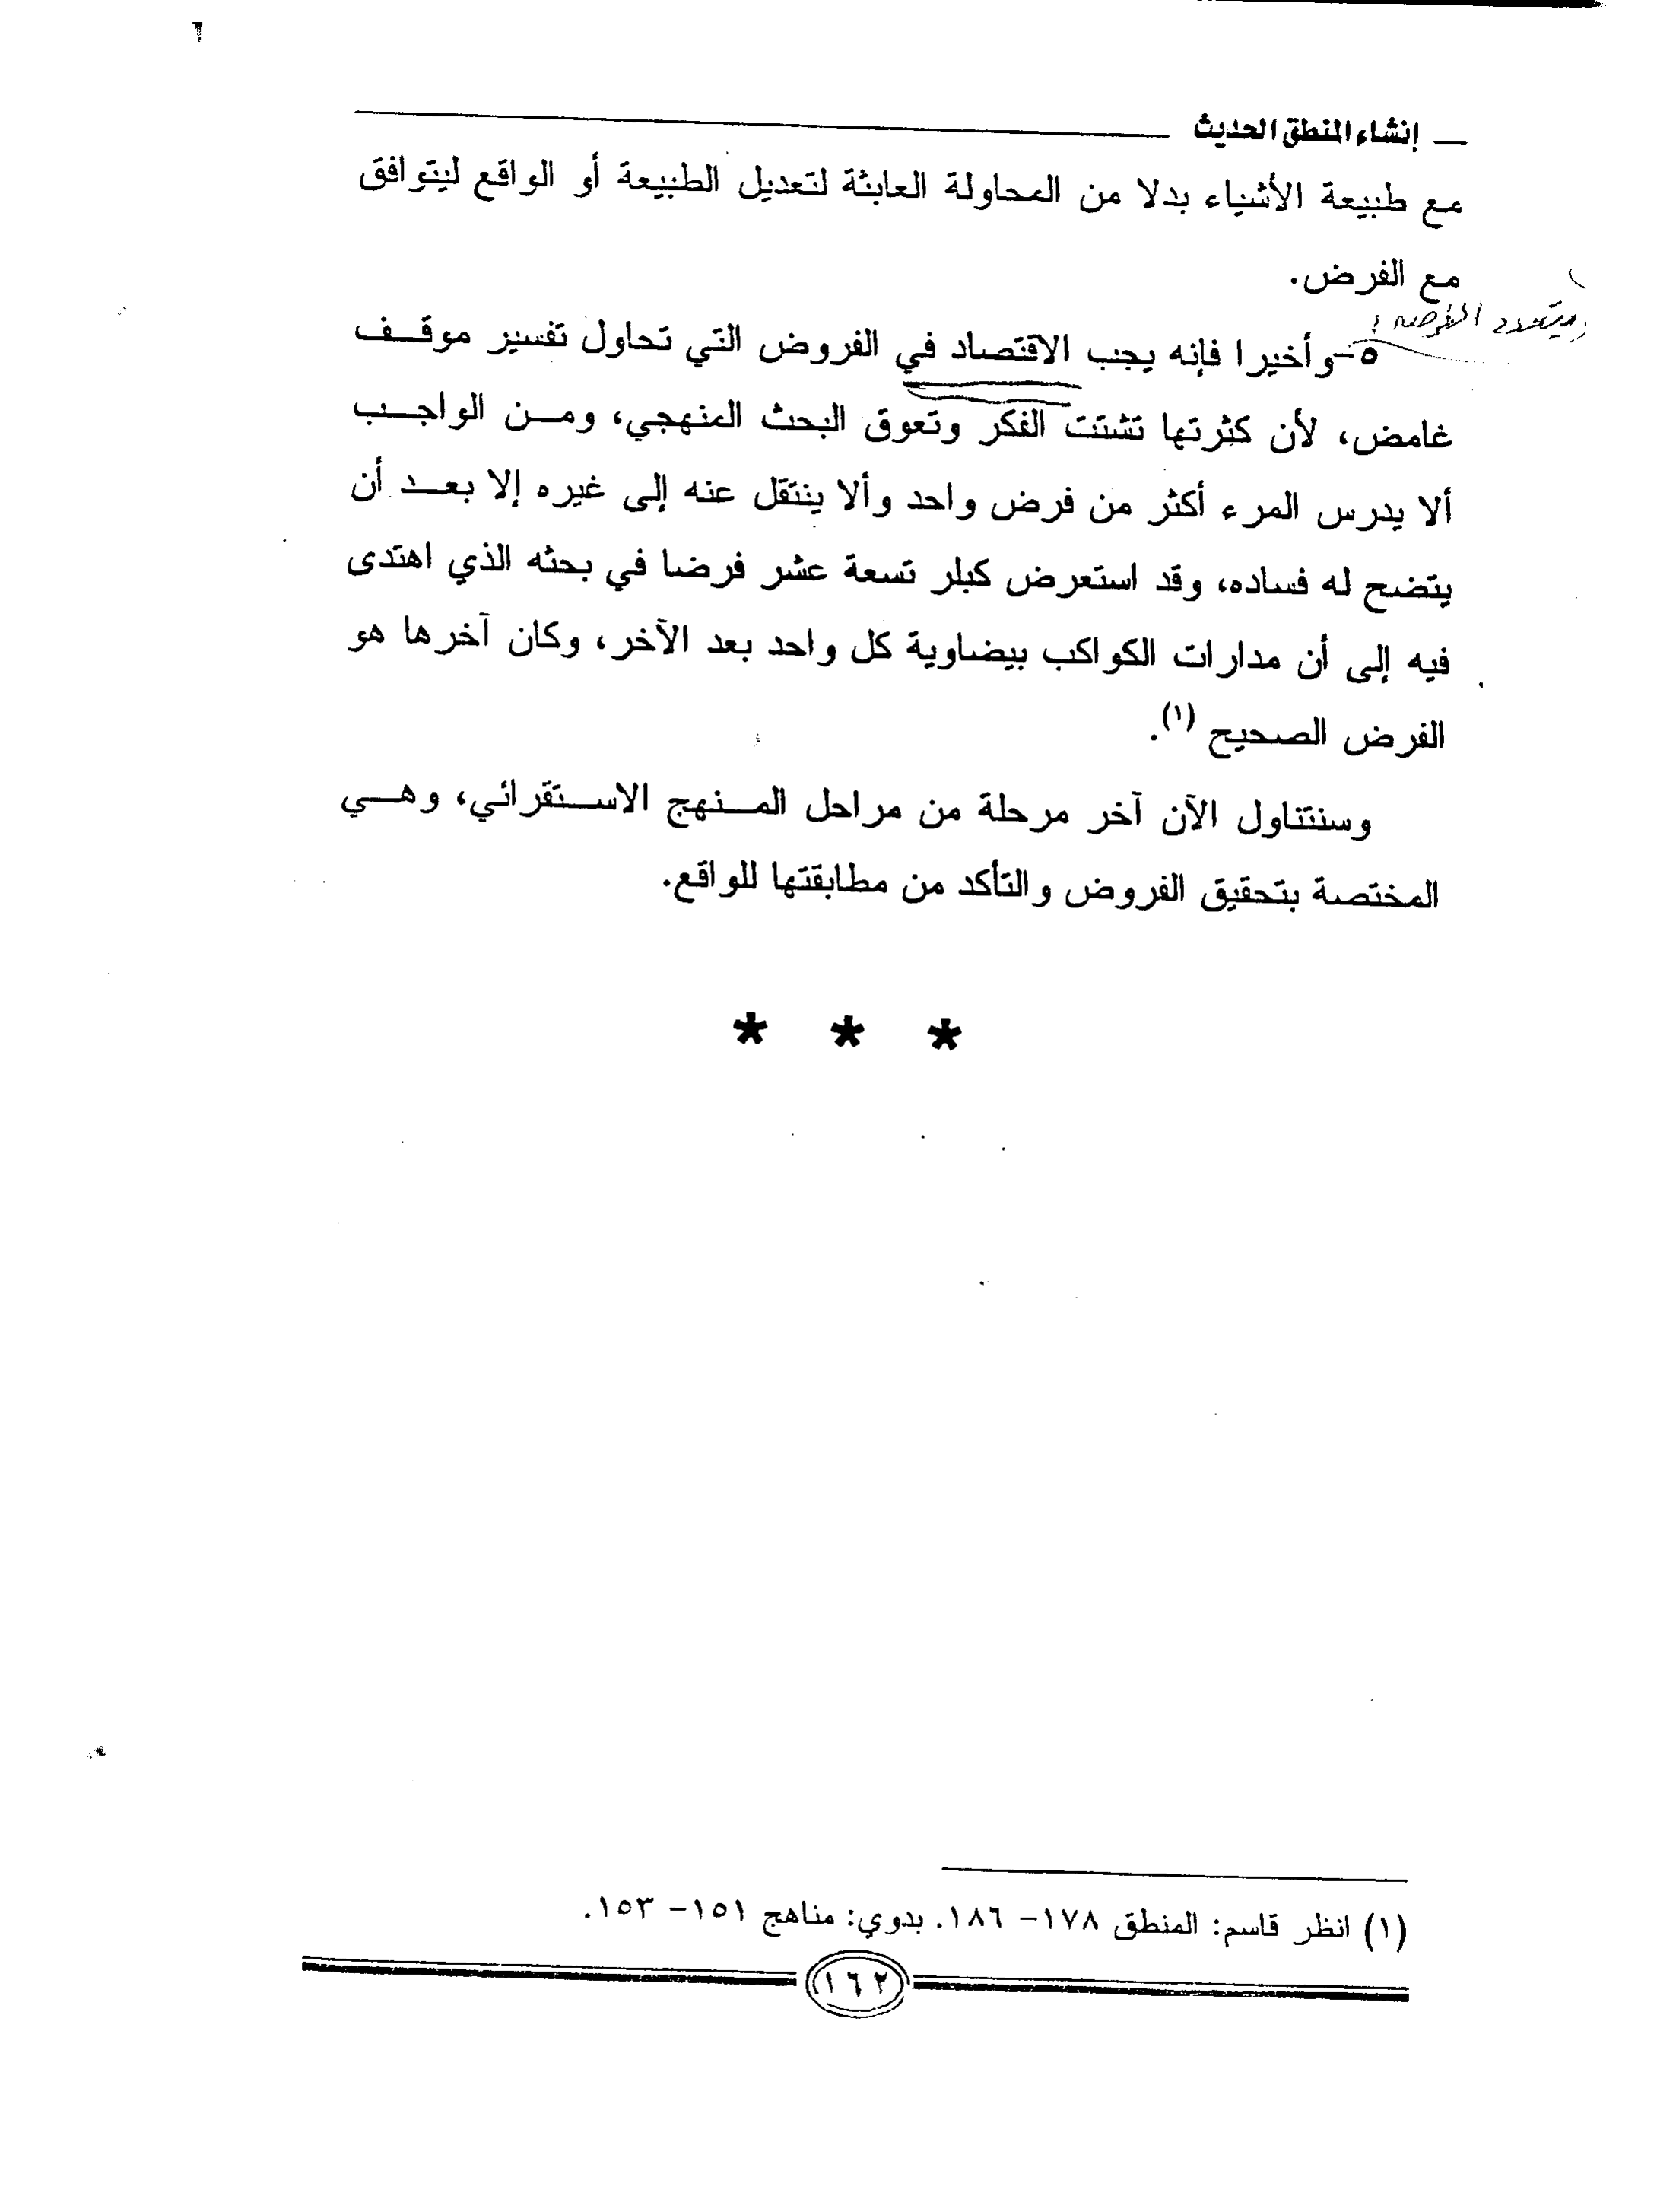 إنشاء المنطق الحديث
مع طبيعة الأشياء بدلا من المحاولة العابثة لتعديل الطبيعة أو الواقع ليتوافق
مع الفرض.
٥-وأخيرا فإنه يجب الاقتصاد في الفروض التي تحاول تفسير موقف
غامض، لأن كثرتها تشتت الفكر وتعوق البحث المنهجي، ومن الواجب
ألا يدرس المرء أكثر من فرض واحد وألا ينتقل عنه إلى غيره إلا بعد أن
يتضح له فساده، وقد استعرض كبلر تسعة عشر فرضا في بحثه الذي اهتدى
فيه إلى أن مدارات الكواكب بيضاوية كل واحد بعد الآخر، وكان آخرها هو
الفرض الصحيح (١).
وسنتناول الآن آخر مرحلة من مراحل المنهج الاستقرائي، وهي
المختصة بتحقيق الفروض والتأكد من مطابقتها للواقع.
* * *
(١) انظر قاسم: المنطق ١٧٨- ١٨٦. بدوي: مناهج ١٥١- ١٥٣.
١٦٢